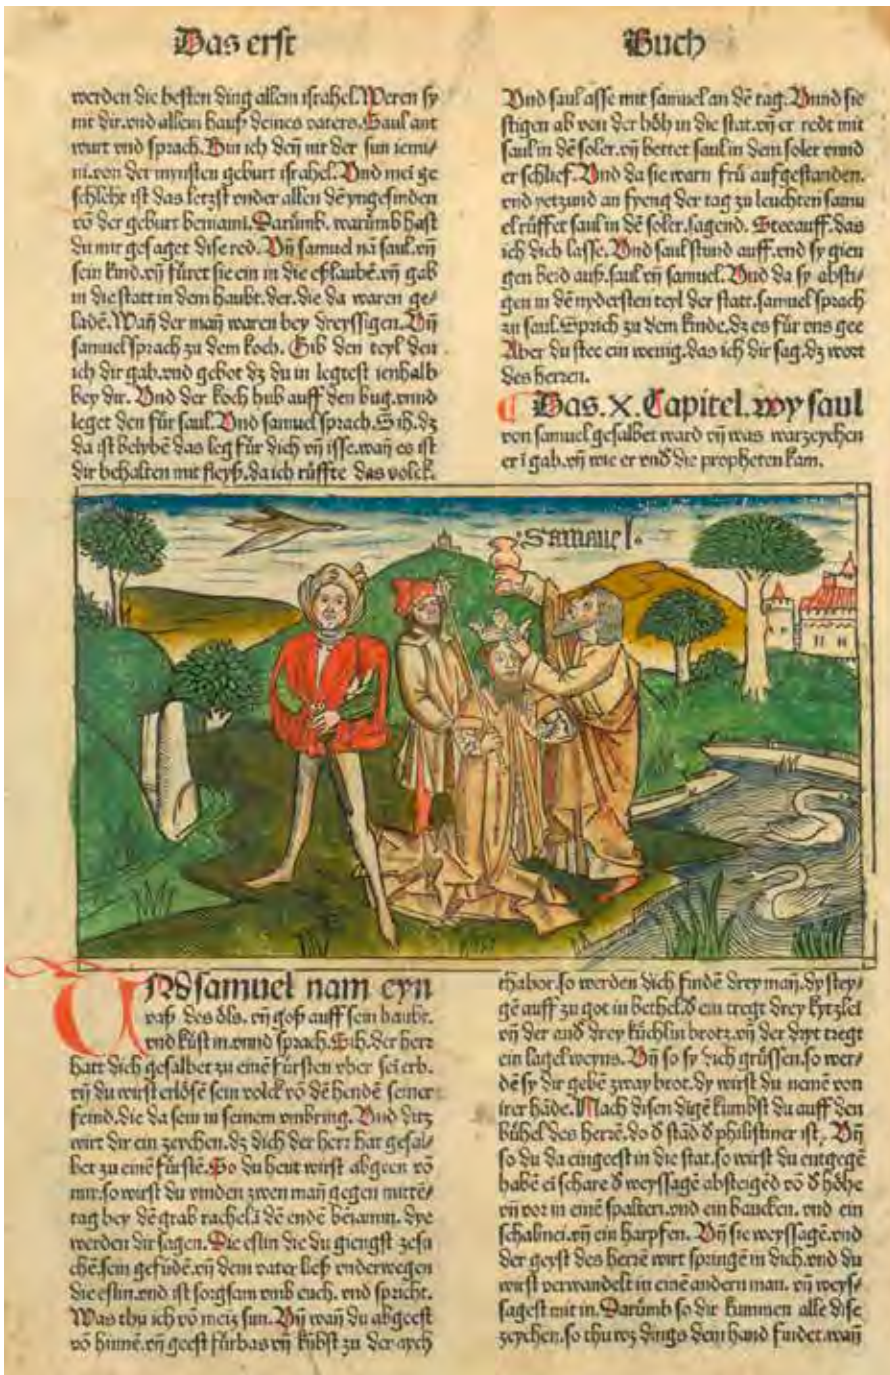 Das erst
Buch
werden die besten ding allem israhel. Weren sy
nit dir. vnd allem hauß deines vaters. Saul ant
wurt vnd sprach. Bin ich deñ nit der sun iemi/
ni. von der mynsten geburt israhel. Vnd mei ge
schlecht ist das letzst vnder allen dē yngesinden
vō der geburt beniami. Darumb. warumb hast
du mir gesaget dise red. Vñ samuel nā saul. vñ
sein kind. vñ fůret sie ein in die eßlaubē. vñ gab
in die statt in dem haubt. der. die da waren ge/
ladē. Wañ der mañ waren bey dreyssigen. Vñ
samuel sprach zu dem koch. Gib den teyl den
ich dir gab. vnd gebot dz du in legtest ienhalb
bey dir. Vnd der koch hub auff den bug. vnnd
leget den für saul. Vnd samuel sprach. Sih. dz
da ist belybē das leg für dich vñ isse. wañ es ist
dir behalten mit fleyß. da ich růffte das volck.
Vnd saul asse mit samuel an dē tag. Vnnd sie
stigen ab von der höh in die stat. vñ er redt mit
saul in dē soler. vñ bettet saul in dem soler vnnd
er schlief. Vnd da sie warn frů aufgestanden.
vnd yetzund an fyeng der tag zu leuchten samu
el růffet saul in dē soler. sagend. Stee auff. das
ich dich lasse. Vnd saul stund auff. vnd sy gien
gen beid auß. saul vñ samuel. Vnd da sy absti/
gen in dē nydersten teyl der statt. samuel sprach
zu saul. Sprich zu dem kinde. dz es für vns gee
Aber du stee ein wenig. das ich dir sag. dz wort
des herren.
Das. X. Capitel. wy saul
von samuel gesalbet ward vñ was warzeychen
er ī gab. vñ wie er vnd die propheten kam.
Samuel.
VNd samuel nam eyn
vaß des öls. vñ goß auff sein haubt.
vnd kůst in. vnnd sprach. Sih. der herr
hatt dich gesalbet zu einē fürsten vber sei erb.
vñ du wirst erlösē sein volck vō dē hendē seiner
feind. die da sein in seinem vmbring. Vnd ditz
wirt dir ein zeychen. dz dich der herr hat gesal/
bet zu einē fürstē. So du heut wirst abgeen vō
mir. so wirst du vinden zwen mañ gegen mittē/
tag bey dē grab rachel. ī dē endē beiamin. dye
werden dir sagen. Die eslin die du giengst zesů
chē. sein gefūdē. vñ dein vater ließ vnderwegen
die eslin. vnd ist sorgsam vmb euch. vnd spricht.
Was thu ich vō meiz sun. Vñ wañ du abgeest
vō hinnē. vñ geest fürbas vñ kūbst zu der aych
thabor. so werden dich findē drey mañ. dy stey/
gē auff zu got in bethel. d ein tregt drey kytzlel
vñ der and drey kůchlin brotz. vñ der dryt tregt
ein lagel weyns. Vñ so sy dich grüssen. so wer/
dē sy dir gebē zway brot. dy wirst du nemē von
irer hāde. Nach disen dīgē kumbst du auff den
bühel des herrē. do d stād d philistiner ist. Vñ
so du da eingeest in die stat. so wirst du entgegē
habē ei schare d weyssagē absteigēd vō d höhe
vñ vor in einē spalterı. vnd ein baucken. vnd ein
schalmei. vñ ein harpfen. Vñ sie weyssagē. vnd
der geyst des herrē wirt springē in dich. vnd du
wirst verwandelt in einē andern man. vñ weys/
sagest mit in. Darumb so dir kummen alle dise
zeychen. so thu wz dings dein hand findet. wañ